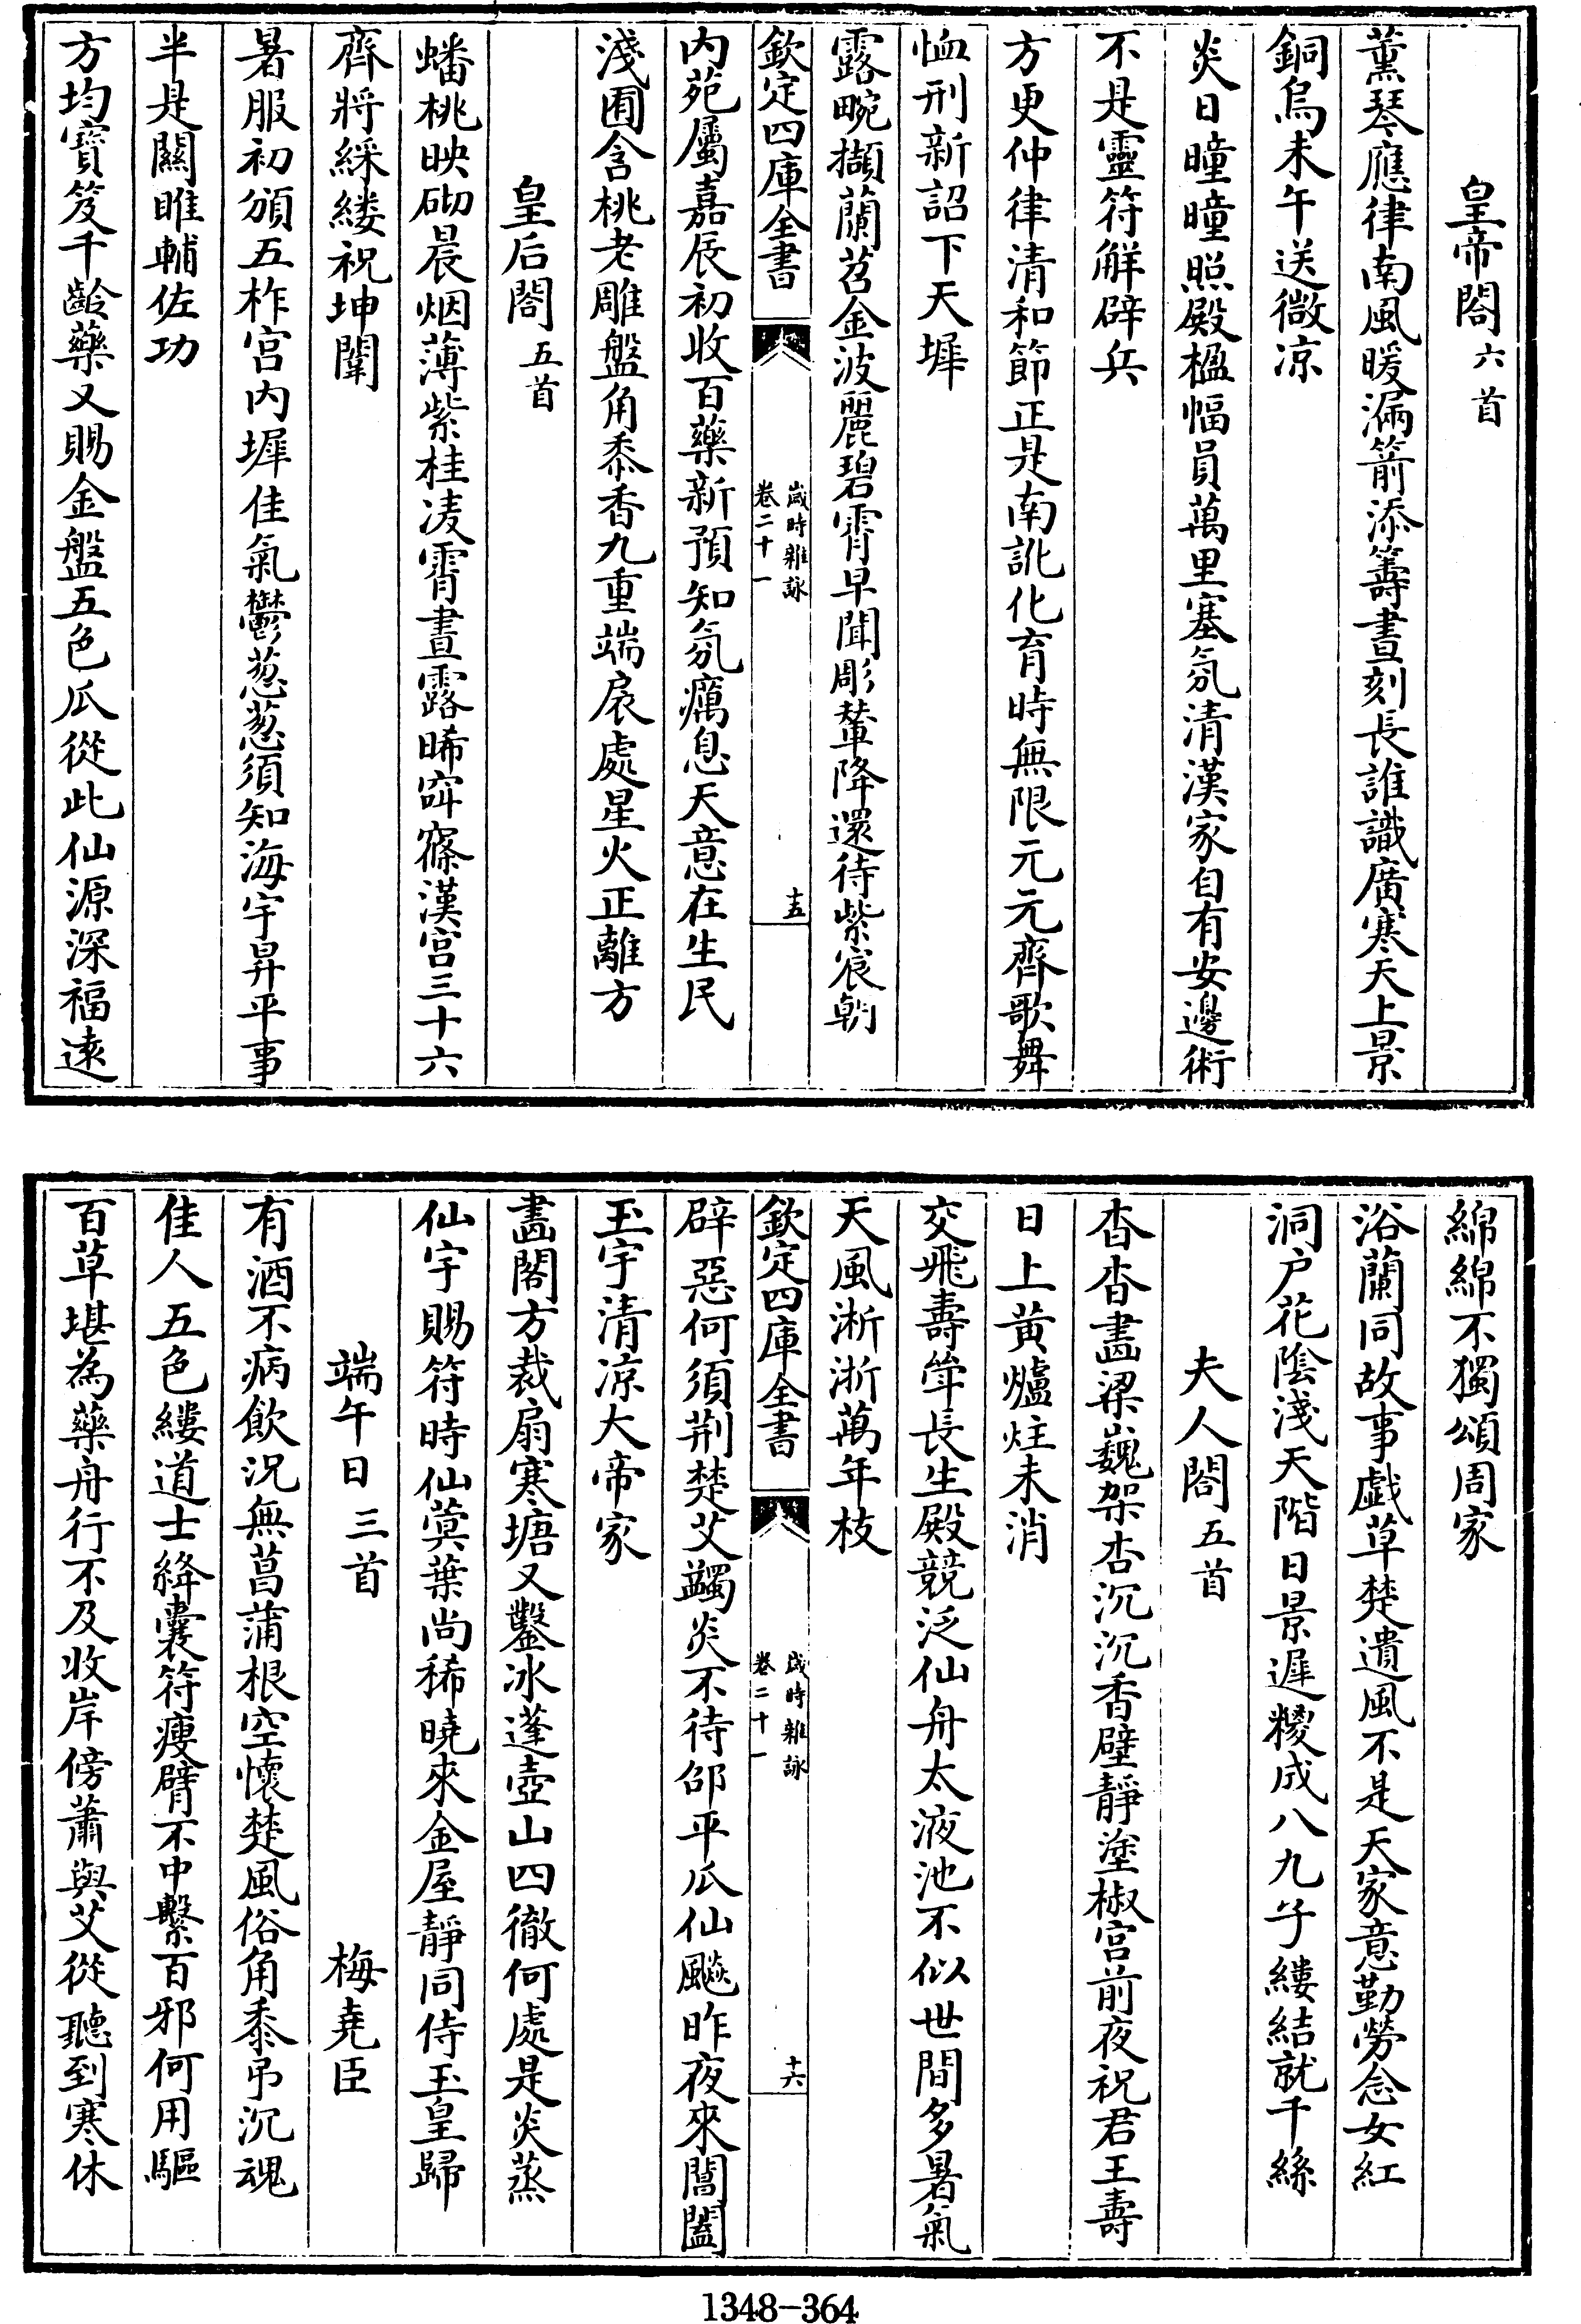 皇帝閤六首
薰琴應律南風暖漏箭添籌晝刻長誰識廣寒天上景
銅烏未午送微凉
炎日曈曈照殿楹幅員萬里塞氛清漢家自有安邊術
不是靈符解辟兵
方更仲律清和節正是南訛化育時無限元元齊歌舞
恤刑新詔下天墀
露畹擷蘭苕金波麗碧霄早聞彫輦降還待紫宸朝
欽定四庫全書
歲時雜詠
卷二十一
十五
内苑屬嘉辰初收百藥新預知氛癘息天意在生民
淺圃含桃老雕盤角黍香九重端扆處星火正離方
皇后閤五首
蟠桃映砌晨烟薄紫桂凌霄晝露晞窙寥漢宫三十六
齊將綵縷祝坤闈
暑服初頒五柞宫内墀佳氣鬱葱葱須知海宇昇平事
半是關雎輔佐功
方均寳笈千齡藥又賜金盤五色瓜從此仙源深福遠
綿綿不獨頌周家
浴蘭同故事戲草楚遺風不是天家意勤勞念女紅
洞户花陰淺天階日景遲糉成八九子縷結就千絲
夫人閤五首
杳杳畵梁巍架杏沉沉香壁靜塗椒宫前夜祝君王壽
日上黄爐炷未消
交飛壽斝長生殿競泛仙舟太液池不似世間多暑氣
天風淅淅萬年枝
欽定四庫全書
歲時雜詠
卷二十一
十六
辟惡何須荆楚艾蠲炎不待邵平瓜仙飈昨夜來閶闔
玉宇清凉大帝家
畵閣方裁扇寒塘又鑿冰蓬壺山四徹何處是炎蒸
仙宇賜符時仙蓂葉尚稀曉來金屋靜同侍玉皇歸
端午日三首 梅堯臣
有酒不病飲況無菖蒲根空懷楚風俗角黍弔沉魂
佳人五色縷道士絳囊符瘦臂不中繫百邪何用驅
百草堪為藥舟行不及收岸傍蕭與艾從聽到寒休
1348-364